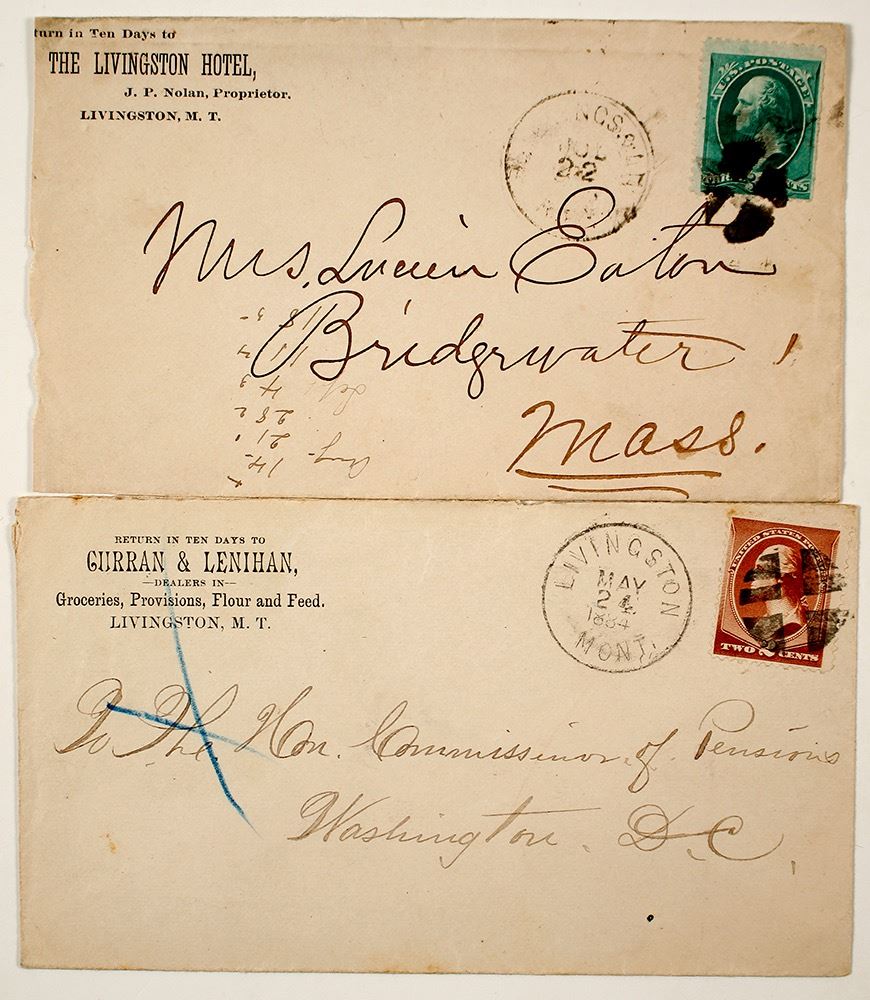 turn in Ten Days to
THE LIVINGSTON HOTEL,
J. P. Nolan, Proprietor.
LIVINGSTON, M. T.
JUL
22
U.S. POSTAGE
Mrs. Lucien Eaton
Bridgewater,
Mass.
5
18
4
11
Sept 4 3
28 2
21 1
Aug- 14-
RETURN IN TEN DAYS TO
CURRAN & LENIHAN,
—DEALERS IN—
Groceries, Provisions, Flour and Feed.
LIVINGSTON, M. T.
LIVINGSTON
MAY
24
1884
MONT.
UNITED STATES PO
TWO 2 CENTS
To The Hon. Commissioner of Pensions
Washington. D.C.